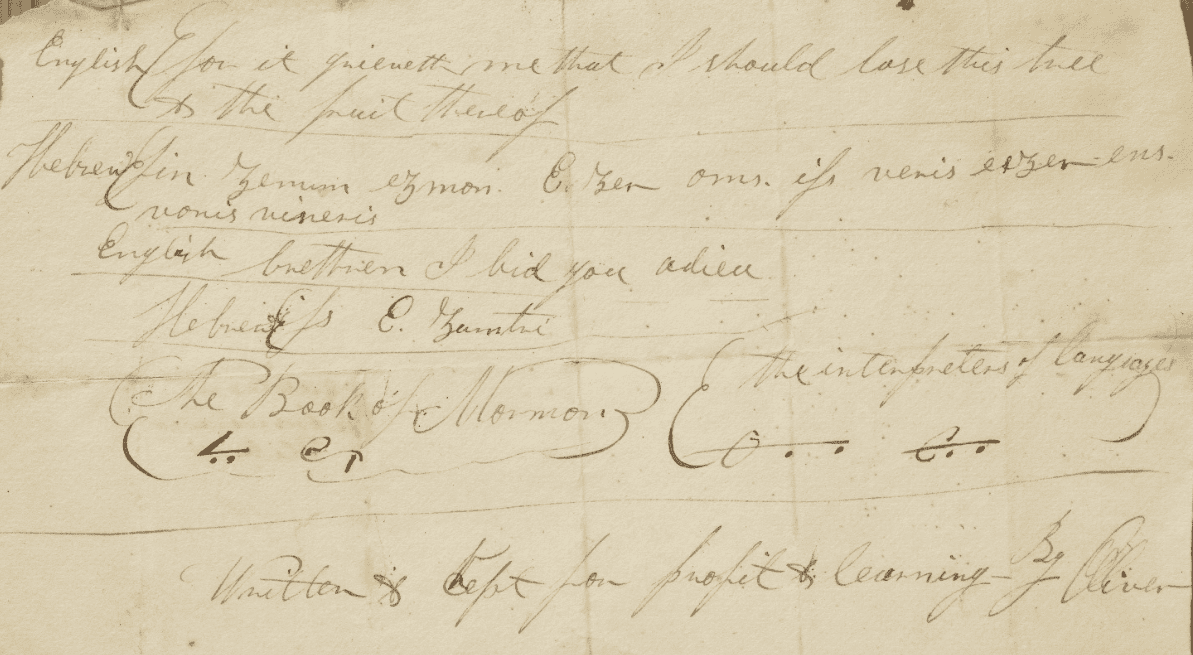 English {for it grieveth me that I should lose this tree
& the fruit thereof
Hebrew {fin Zemim ezmon. E, Zer oms. ifs veris exzer ens.
vonis vineris
English brethren I bid you adieu
Hebrew ifs E. Zamtri
{The Book of Mormon}
{the interpreters of languages}
Written & Kept for profit & learning - By Oliver